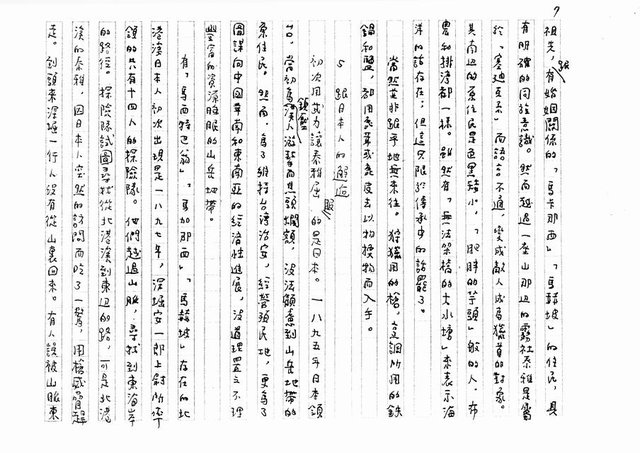 7
祖先，跟有姻姻關係的「馬卡那西」、「馬赫坡」的住民，具
有明確的同族意識。然而越過一座山那邊的霧社泰雅是屬
於「塞迪克系」而語言不通，變成敵人成為獵首的對象。
其南邊的原住民是黑矮小，「肥胖的芋頭」般的人。布
農和排灣都一樣。雖然有「無法架橋的大水塘」來表示海
洋的話存在；但這只限於傳承中的話罷了。
當然並非跟平地無來往。狩獵用的槍，烹調所用的鐵
鍋和鹽，都用熊茸或鹿皮去以物換物而入手。
5 跟日本人的邂逅
初次用武力讓泰雅屈服的是日本。一八九五年日本領
台，當初為漢人游擊的鎮壓焦頭爛額，沒法顧慮到山岳地帶的
原住民。然而，為了維持台灣治安，經營殖民地，更為了
圖謀向中國華南和東南亞的經濟性進展，沒道理置之不理
豐富的資源睡眠的山岳地帶。
有「馬西特巴翁」、「馬加那西」、「馬赫坡」存在的北
港溪日本人初次出現是一八九七年，深堀安一郎上尉所率
領的共有十四人的探險隊。他們越過山脈，尋找到東海岸
的路徑。探險隊試圖尋找從北港溪到東邊的路，可是北港
溪的泰雅，因日本人突然的訪問而吃了一驚，用槍威脅趕
走。到頭來深堀一行人沒有從山裏回來。有人說被山脈東